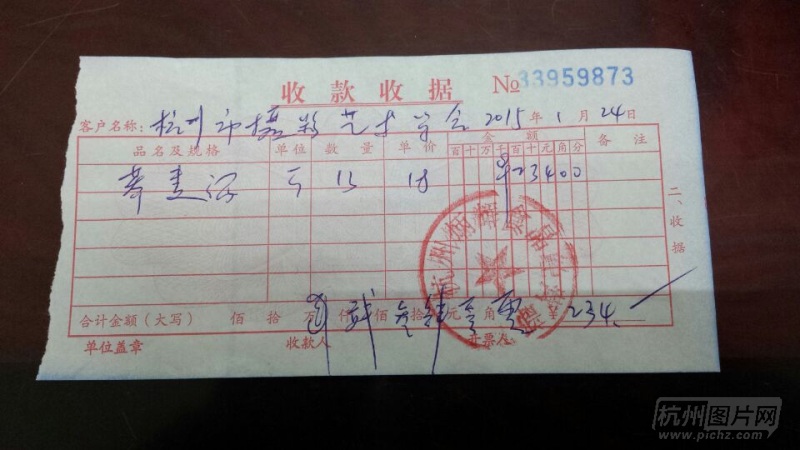 收款收据 № 33959873
客户名称: 杭州市摄影艺术学会 2015年 1月 24日
品名及规格 单位 数量 单价 金额 备注
百十万千百十元角分
13 18 ¥23400
二、收据
合计金额（大写） 佰 拾 万 仟 佰 拾 元 角 ¥234.
单位盖章 收款人 开票人
杭州图片网
www.pichz.com